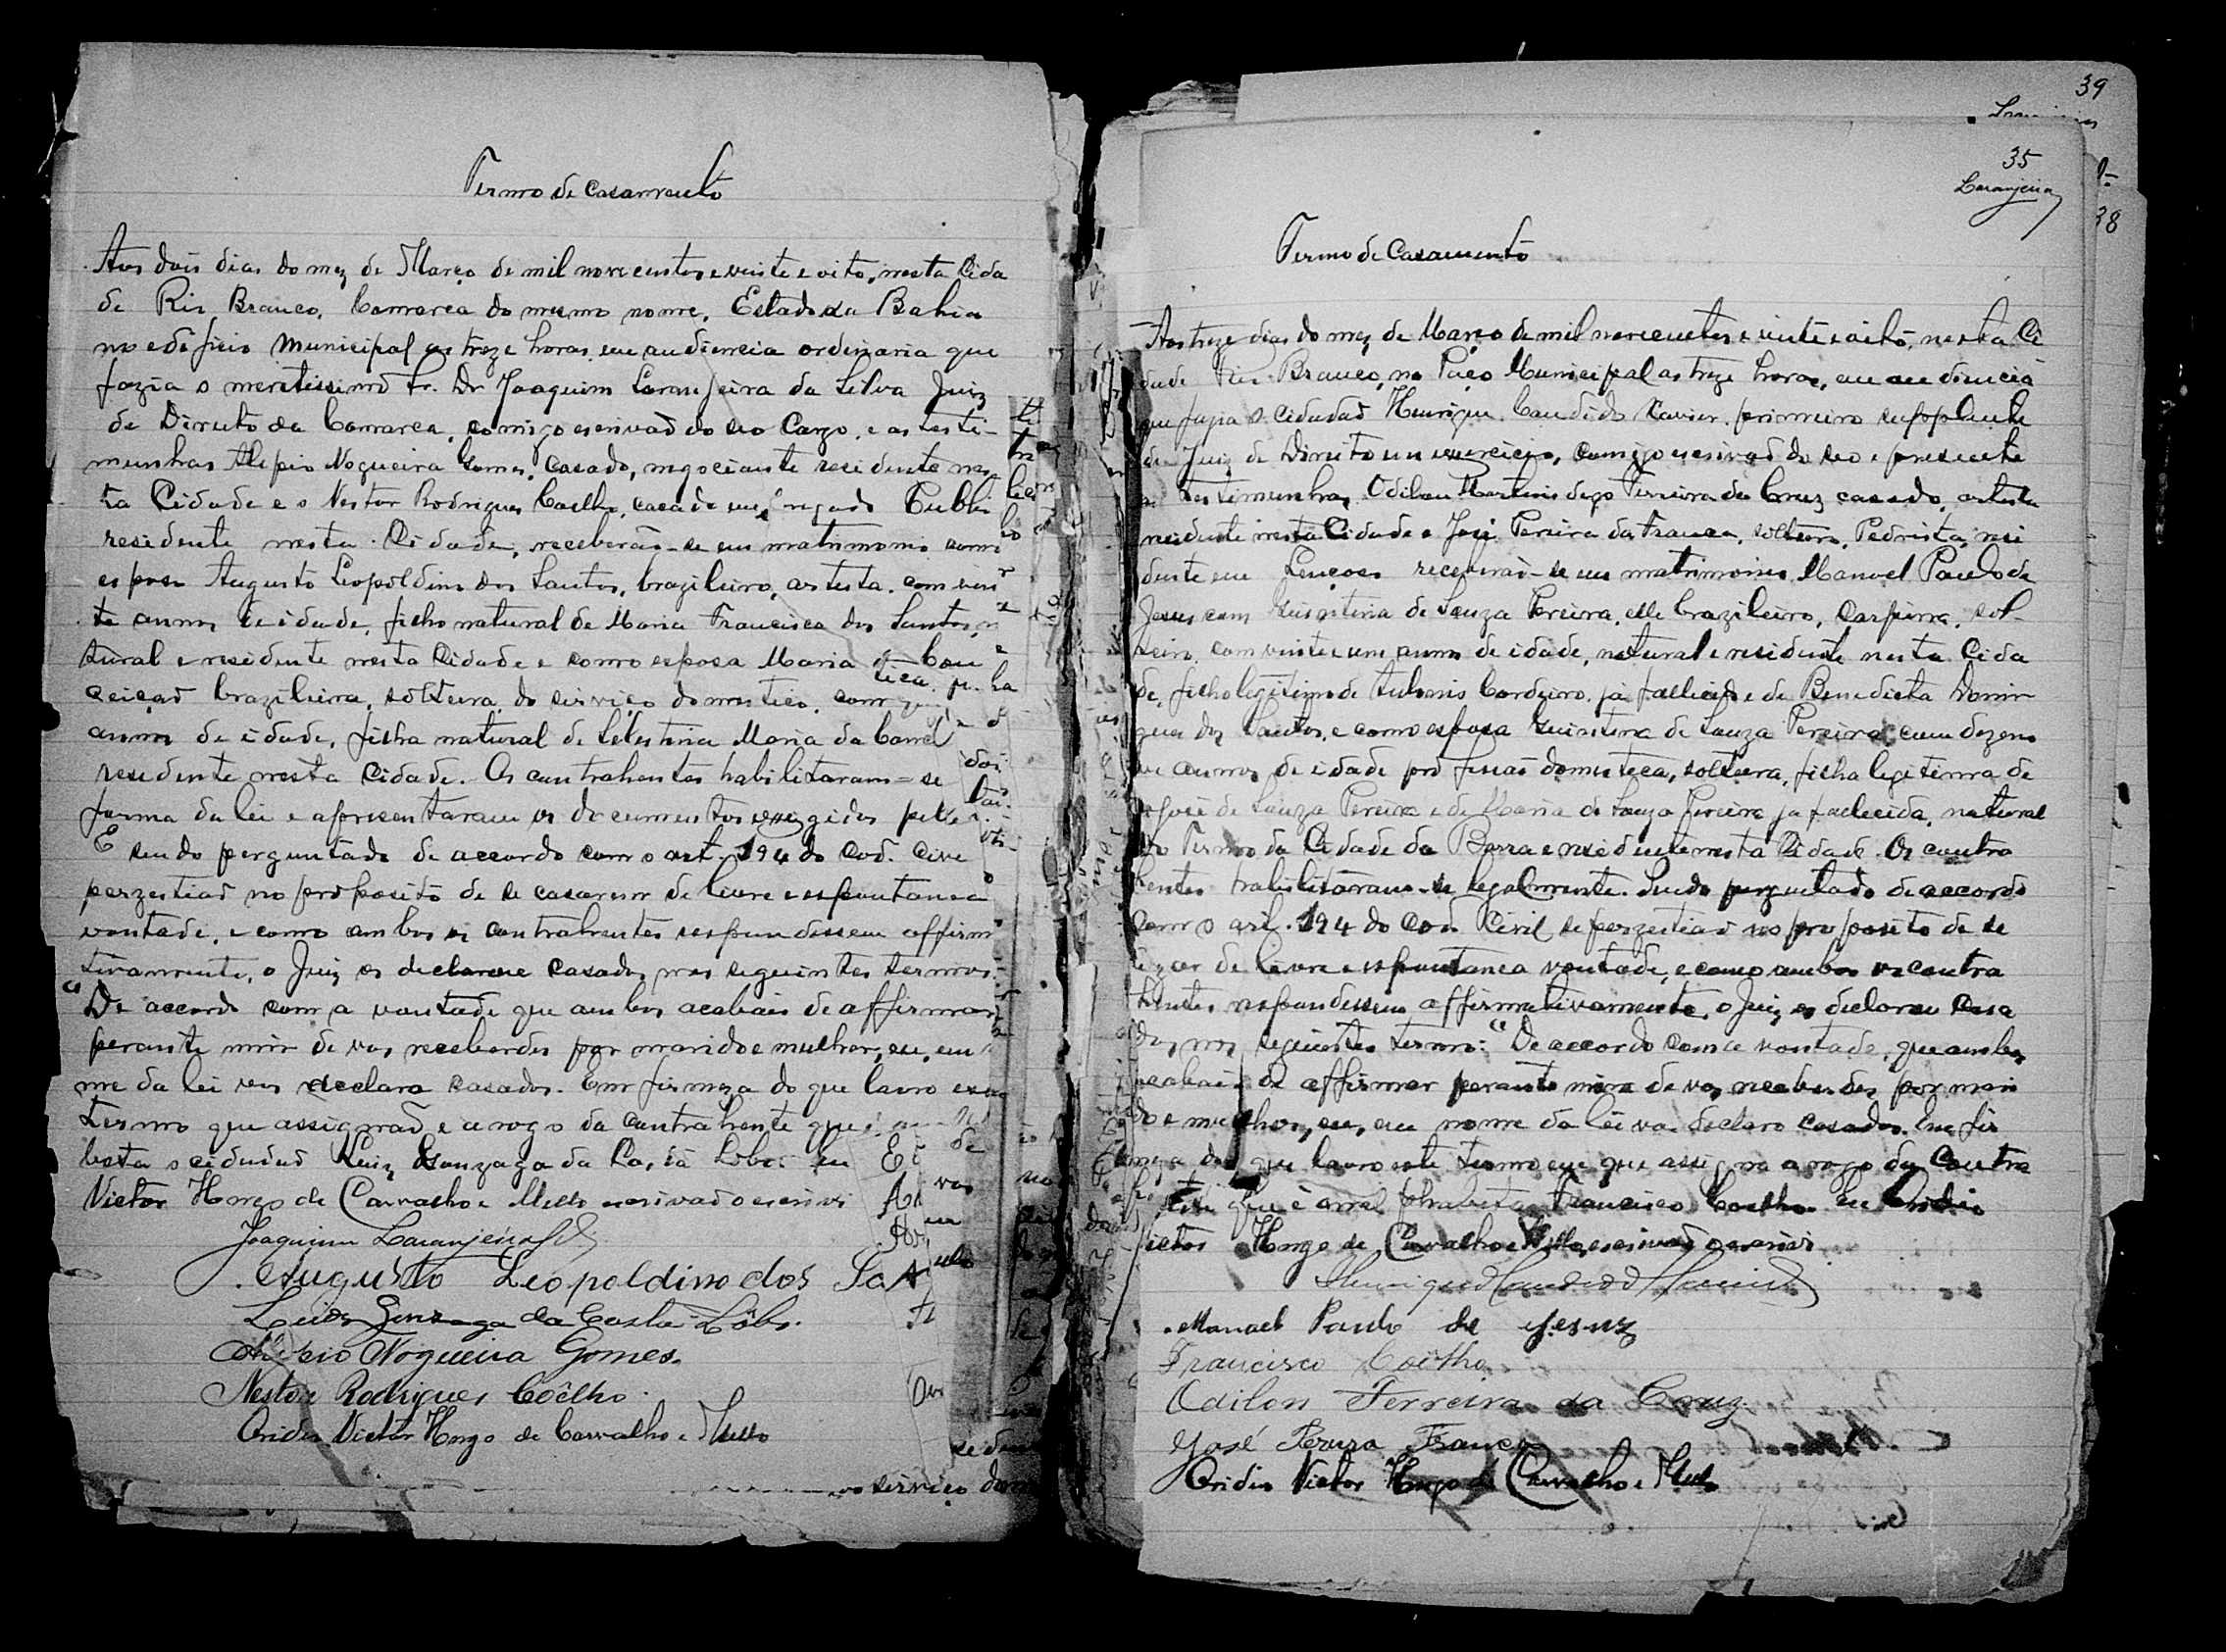 Termo de Casamento
Aos dois dias do mez de Março de mil novecentos e vinte e oito, nesta Cida
de Rio Branco, Comarca do mesmo nome, Estado da Bahia
no edificio Municipal as treze horas em audiencia ordinaria que
fazia o meretissimo Sr. Dr Joaquim Laranjeira da Silva Juiz
de Direito da Comarca, comigo escrivaõ do seo Cargo, e as teste-
munhas Alipio Nogueira Gomes, Casado, negociante residente nes
ta Cidade e o Nestor Rodrigues Coelho, casado empregado Publi
residente nesta Cidade, receberaõ-se em matrimonio como
esposo Augusto Leopoldino dos Santos, brazileiro, artista, com vin
te annos de idade, filho natural de Maria Francisca dos Santos,
tural e residente nesta Cidade e como esposa Maria da Con
ceiçaõ brazileira, solteira, do serviço domestico, com
annos de idade, filha natural de Celestina Maria da
residente nesta Cidade. Os contrahentes habilitaram-se
forma da lei e apresentaram os documentos exegidos
E sendo perguntado de accordo com o art. 194 do Cod. Cive
perzestiaõ no proposito de se casarem de livre e espontanea
vontade, e como ambos os contrahentes respondessem affirm
tivamente, o Juiz os declarou casados nos seguintes termos:
"De accordo com a vontade que ambos acabais de affirmar
perante mim de vos receberdes por marido e mulher, eu, em
me da lei vos declaro casados. Em firmeza do que lavro
termo que assignaõ e a rogo da contrahente que
beta o cidadaõ Luiz Gonzaga da Costa Lobo. Eu
Victor Hugo de Carvalho e Mello escrivaõ o escrivi
Joaquim Laranjeira
Augusto Leopoldino dos
Luiz Gonzaga da Costa Lôbo.
Alipio Nogueira Gomes.
Nestor Rodrigues Coêlho.
Ovidio Victor Hugo de Carvalho e Mello
serviço
39
35
Laranjeira
38
Termo de Casamento
Aos treze dias do mez de Março de mil novecentos e vinte e oito, nesta Ci
dade Rio Branco, no Paço Municipal as treze horas, em audiencia
que fazia o cidadaõ Henrique Candido Xavier, primeiro supplente
de Juiz de Direito em exercicio, comigo escrivaõ do seo e presente
as testemunhas, Odilon Martins digo Ferreira da Cruz casado, artista
residente nesta Cidade e José Pereira da Franca, solteiro, Pedrista, resi
dente em Lençoes receberaõ-se em matrimonio Manoel Paulo de
Jesus com Quintina de Souza Pereira, elle brazileiro, Carpina, sol-
teiro, com vinte e um annos de idade, natural e residente nesta Cida
de, filho legitimo de Antonio Cordeiro, já fallecido e de Benedicta Domin
gues dos Santos, e como esposa Quintina de Souza Pereira, com dezeno
ve annos de idade profissaõ domestica, solteira, filha legitima de
José de Souza Pereira e de Maria de Souza Pereira já fallecida, natural
do Termo da Cidade da Barra e residente nesta Cidade. Os contra
hentes habilitaram-se legalmente. Sendo perguntado de accordo
com o art. 194 do Cod. Civil se perzestiaõ no proposito de se
de livre e espontanea vontade, e como ambos os contra
hentes respondessem affirmativamente, o Juiz os declarou casa
dos nos seguintes termos: "De accordo com a vontade, que ambos
acabais de affirmar perante mim de vos receberdes por mari
do e mulher, eu, em nome da lei vos declaro casados. Em fir
meza do que lavro este termo em que assigna a rogo da Contra
que é anal phabeta Francisco Coelho. Eu Ovidio
Victor Hugo de Carvalho e Mello, escrivaõ o escrivi.
Henrique Candido Xavier
Manoel Paulo de Jesuz
Francisco Coêlho
Odilon Ferreira da Cruz.
José Pereira Franca
Ovidio Victor Hugo de Carvalho e Mello